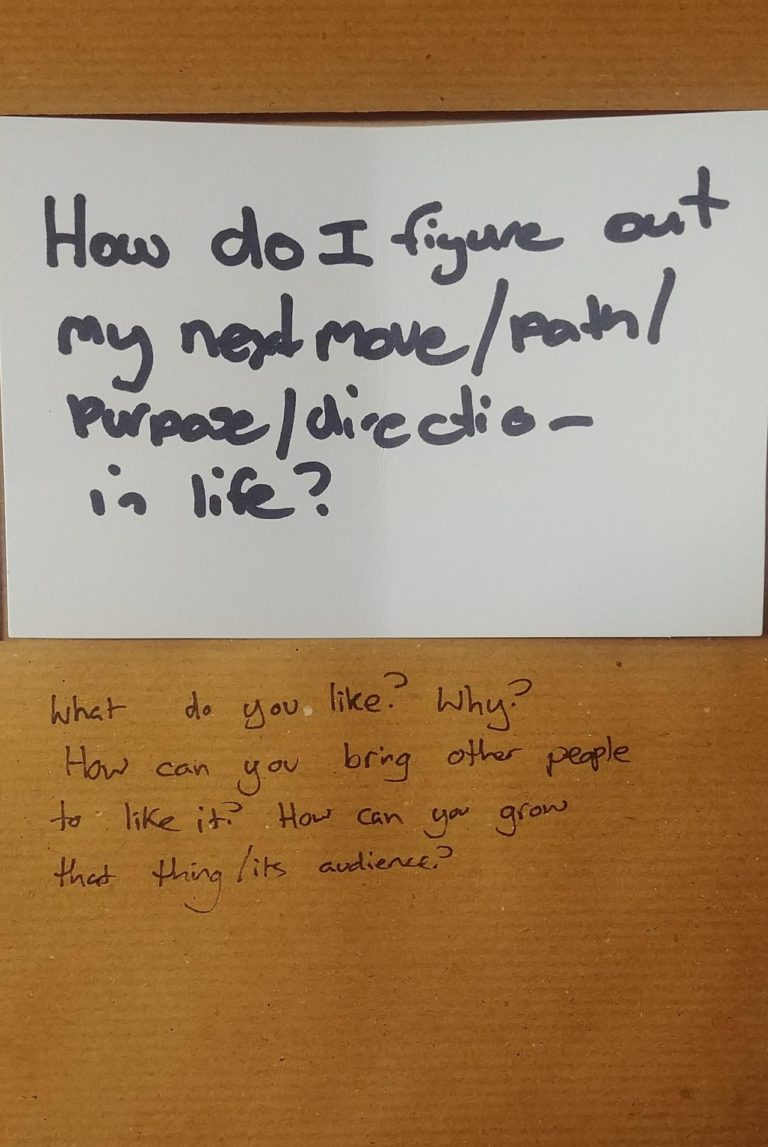 How do I figure out
my next move/path/
purpose/direction
in life?
What do you like? Why?
How can you bring other people
to like it? How can you grow
that thing/its audience?